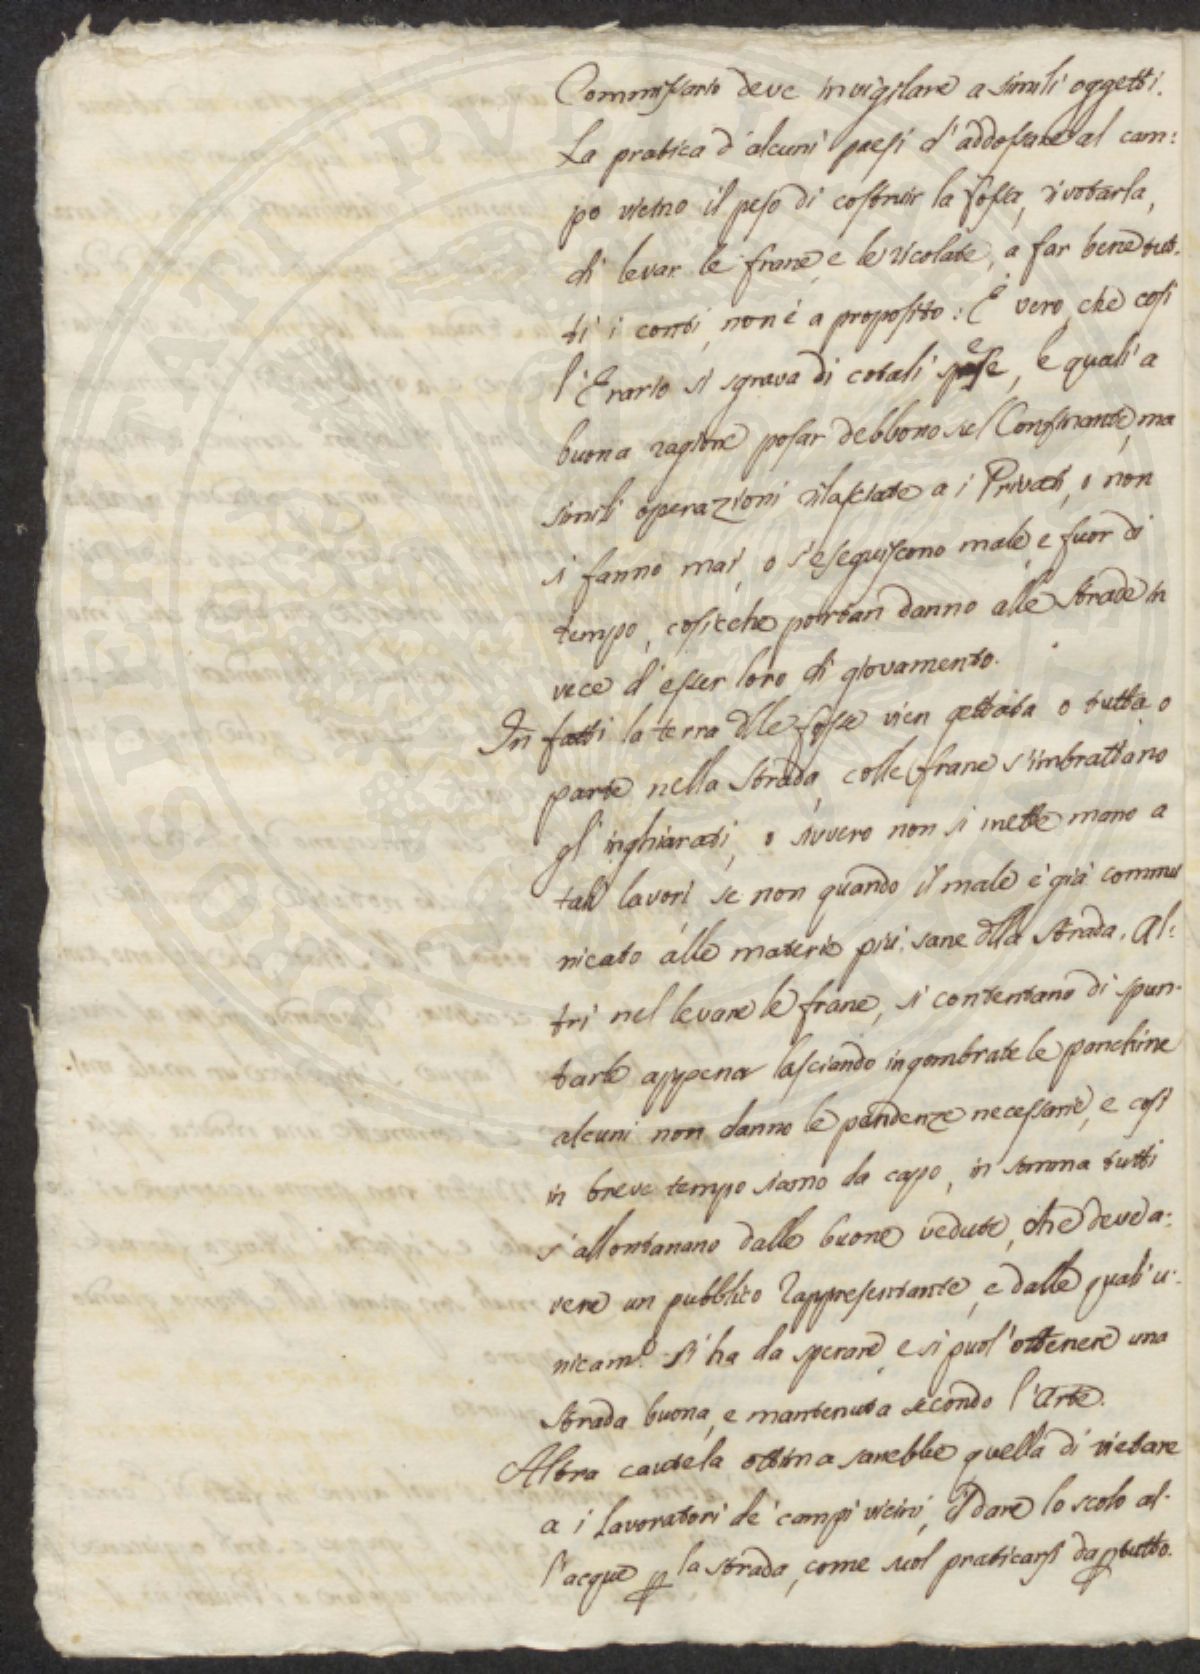 Commissario deve invigilare a simili oggetti.
La pratica d'alcuni paesi d'addossare al cam:
po vicino il peso di costruir la fossa, rivotarla,
di levar le frane e le ricolate, a far bene tut:
ti i conti, non è a proposito: È vero, che così
l'Erario si sgrava di cotali spese, le quali a
buona ragione posar debbono sul Confinante, ma
simili operazioni rilasciate a i Privati, o non
si fanno mai, o s'eseguiscono male, e fuor di
tempo, cosicche portan danno alle strade in
vece d'esser loro di giovamento.
In fatti la terra dlle fosse vien gettata o tutta o
parte nella strada, colle frane s'imbrattano
gl'inghiarati, o sivvero non si mette mano a
tali lavori se non quando il male è già commu
nicato alle materie più sane dlla strada. Al:
tri nel levare le frane, si contentano di spun:
tarle appena lasciando ingombrate le panchine
alcuni non danno le pendenze necessarie, e così
in breve tempo siamo da capo, in somma tutti
s'allontanano dalle buone vedute, che deve a:
vere un pubblico rappresentante, e dalle quali u:
nicam.e si ha da sperare, e si puol'ottenere una
strada buona, e mantenuta secondo l'Arte.
Altra cautela ottima sarebbe quella di vietare
a i Lavoratori de' campi vicini, il dare lo scolo al:
l'acque p la strada, come suol praticarsi da p tutto.
SOPR PRIVAT PVBL